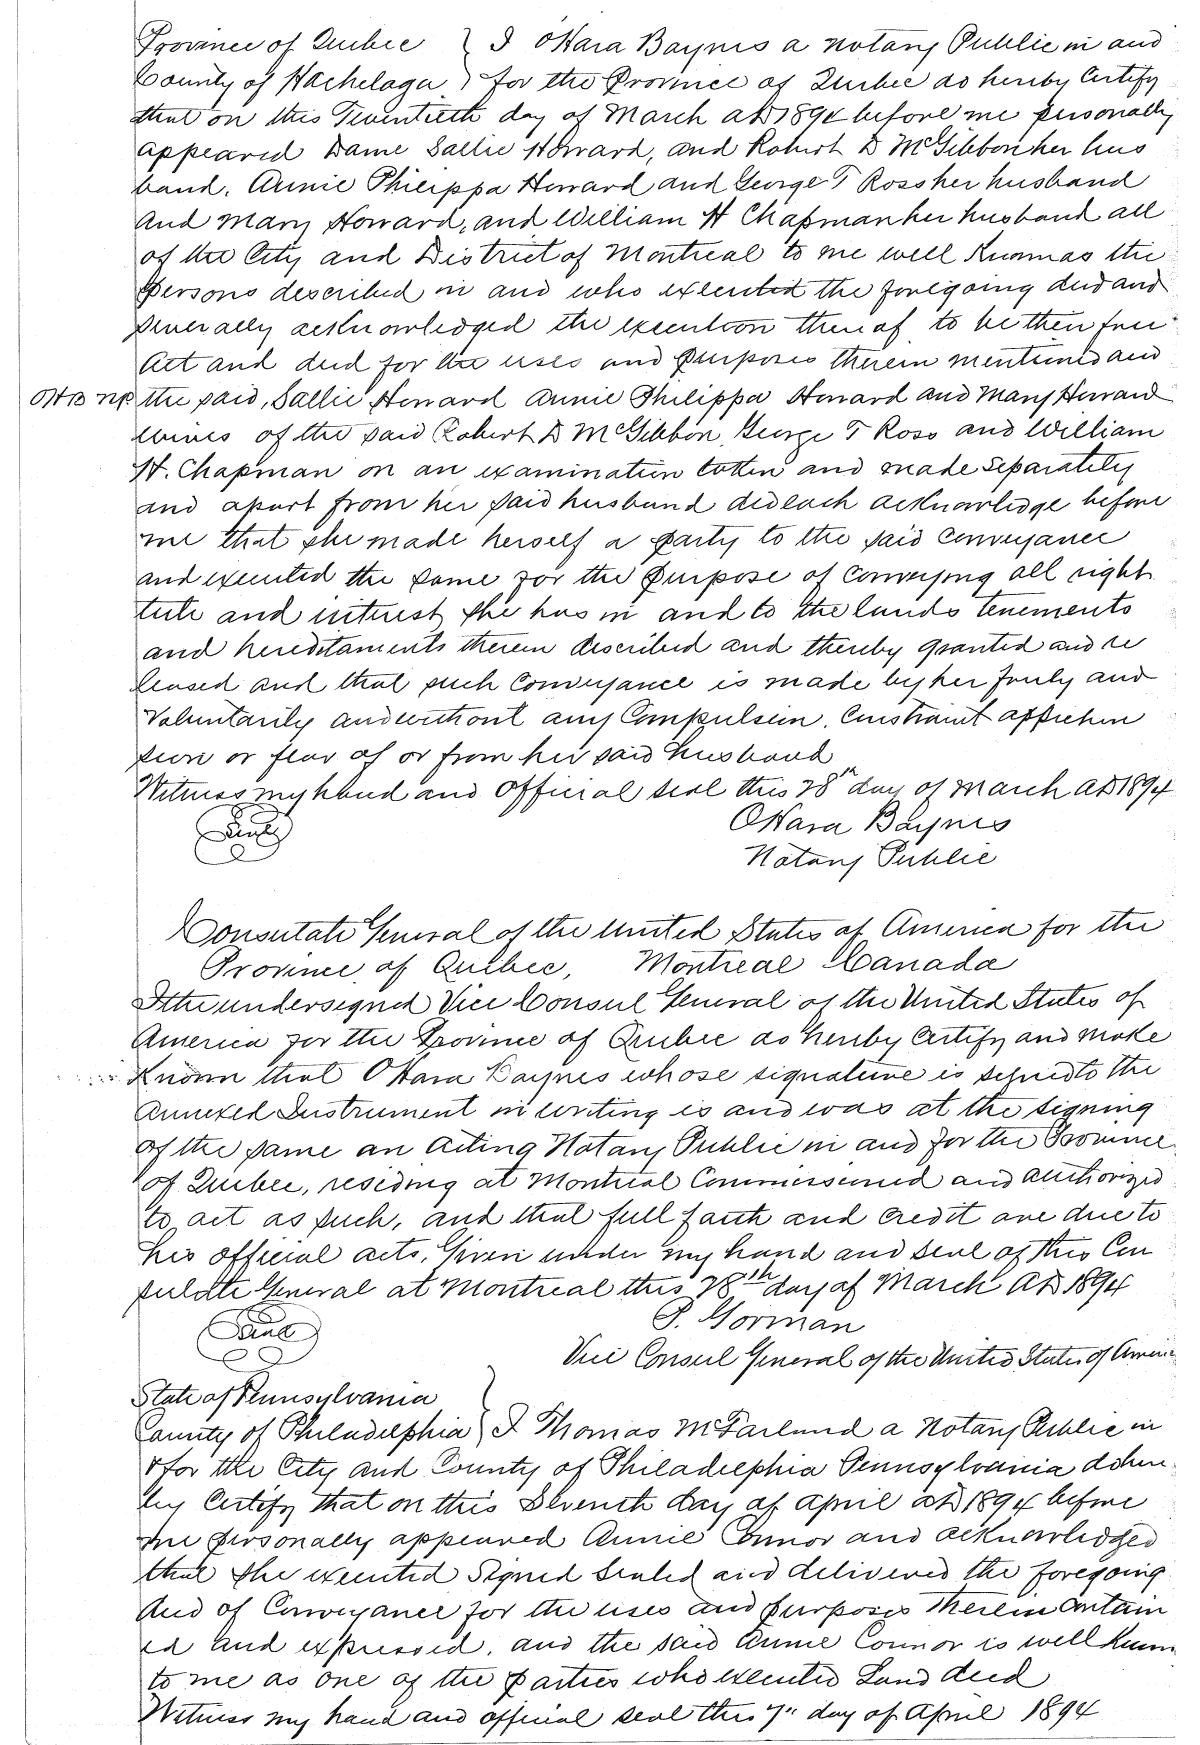 Province of Quebec } I O'Hara Baynes a Notary Public in and
County of Hochelaga } for the Province of Quebec do hereby Certify
that on this Twentieth day of March AD 1894 before me personally
appeared Dame Sallie Howard, and Robert D McGibbon her hus
band, Annie Philippa Howard and George T Ross her husband
And Mary Howard, and William H Chapman her husband all
of the City and District of Montreal to me well Known as the
Persons described in and who executed the foregoing deed and
severally acknowledged the execution thereof to be their free
Act and deed for the uses and purposes therein mentioned and
OHB NP the said, Sallie Howard Annie Philippa Howard and Mary Howard
wives of the said Robert D McGibbon, George T Ross and William
H. Chapman on an examination taken and made Separately
and apart from her said husband did each acknowledge before
me that she made herself a party to the said Conveyance
and executed the same for the purpose of Conveying all right
title and interest she has in and to the lands tenements
and hereditaments therein described and thereby granted and re
leased and that such Conveyance is made by her freely and
Voluntarily and without any Compulsion, Constraint apprehen
sion or fear of or from her said husband
Witness my hand and Official seal this 28th day of March AD 1894
Seal O'Hara Baynes
Notary Public
Consulate General of the United States of America for the
Province of Quebec, Montreal Canada
I the undersigned Vice Consul General of the United States of
America for the Province of Quebec do hereby Certify and make
Known that O'Hara Baynes whose signature is signed to the
Annexed Instrument in writing is and was at the signing
of the same an Acting Notary Public in and for the Province
of Quebec, residing at Montreal Commissioned and authorized
to act as such, and that full faith and Credit are due to
his official acts, Given under my hand and seal of this Con
sulate General at Montreal this 28th day of March AD 1894
Seal P. Gorman
Vice Consul General of the United States of America
State of Pennsylvania }
County of Philadelphia } I Thomas McFarland a Notary Public in
& for the City and County of Philadelphia Pennsylvania do here
by Certify that on this Seventh day of April AD 1894 before
me personally appeared Annie Connor and acknowledged
that she executed Signed Sealed and delivered the foregoing
deed of Conveyance for the uses and purposes therein Contain
ed and expressed, and the said Annie Connor is well Known
to me as one of the parties who executed Said deed
Witness my hand and official seal this 7" day of April 1894